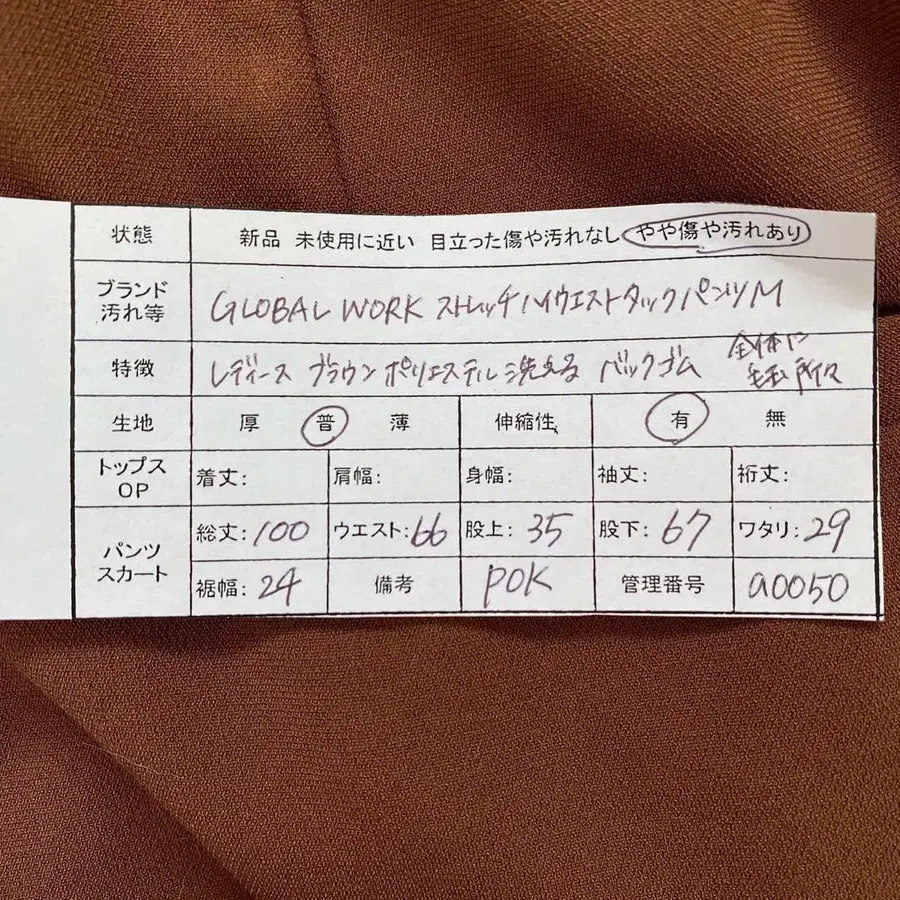 状態 新品 未使用に近い 目立った傷や汚れなし やや傷や汚れあり
ブランド 汚れ等 GLOBAL WORK ストレッチハイウエストタックパンツM
特徴 レディース ブラウン ポリエステル 洗える バックゴム 全体に毛玉所々
生地 厚 普 薄 伸縮性 有 無
トップス OP 着丈: 肩幅: 身幅: 袖丈: 裄丈:
パンツ スカート 総丈:100 ウエスト:66 股上:35 股下:67 ワタリ:29
裾幅:24 備考 POK 管理番号 a0050